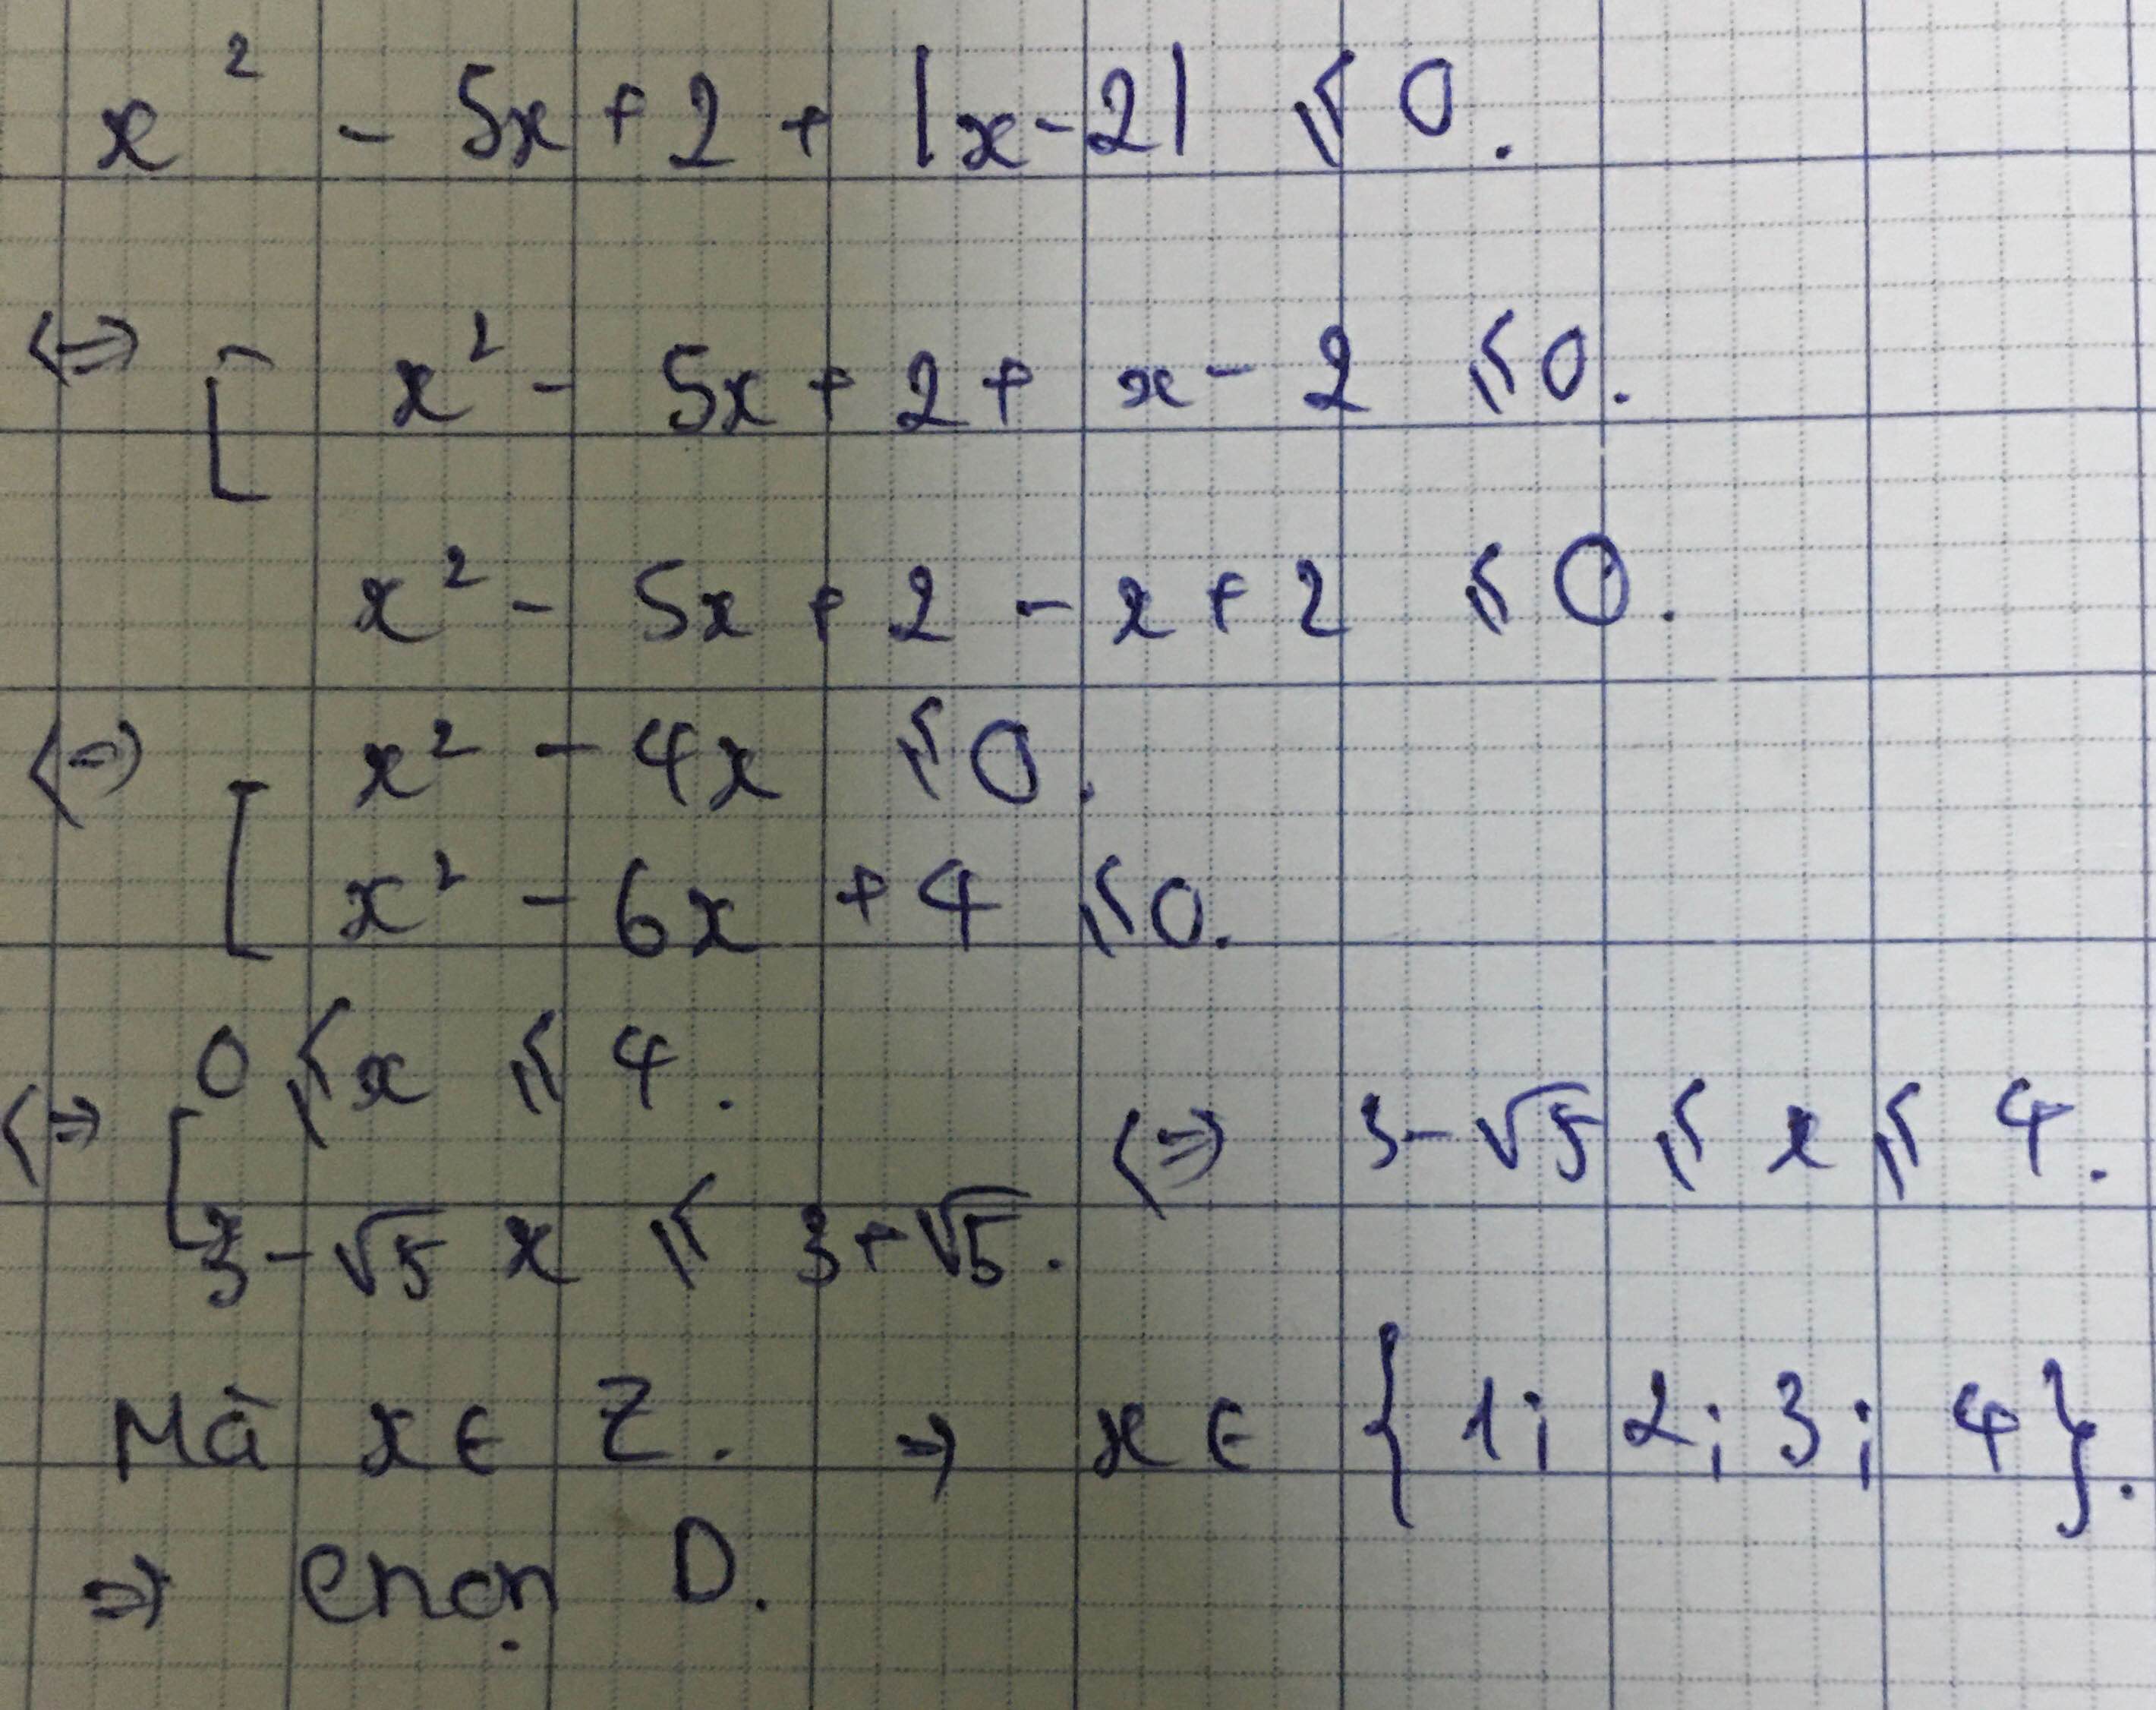 x² - 5x + 2 + |x - 2| ⩽ 0.
⇔ [ x² - 5x + 2 + x - 2 ⩽ 0.
x² - 5x + 2 - x + 2 ⩽ 0.
⇔ [ x² - 4x ⩽ 0.
x² - 6x + 4 ⩽ 0.
⇔ [ 0 ⩽ x ⩽ 4.
3 - √5 x ⩽ 3 + √5.
⇔ 3 - √5 ⩽ x ⩽ 4.
Mà x ∈ Z. ⇒ x ∈ {1; 2; 3; 4}.
⇒ chọn D.